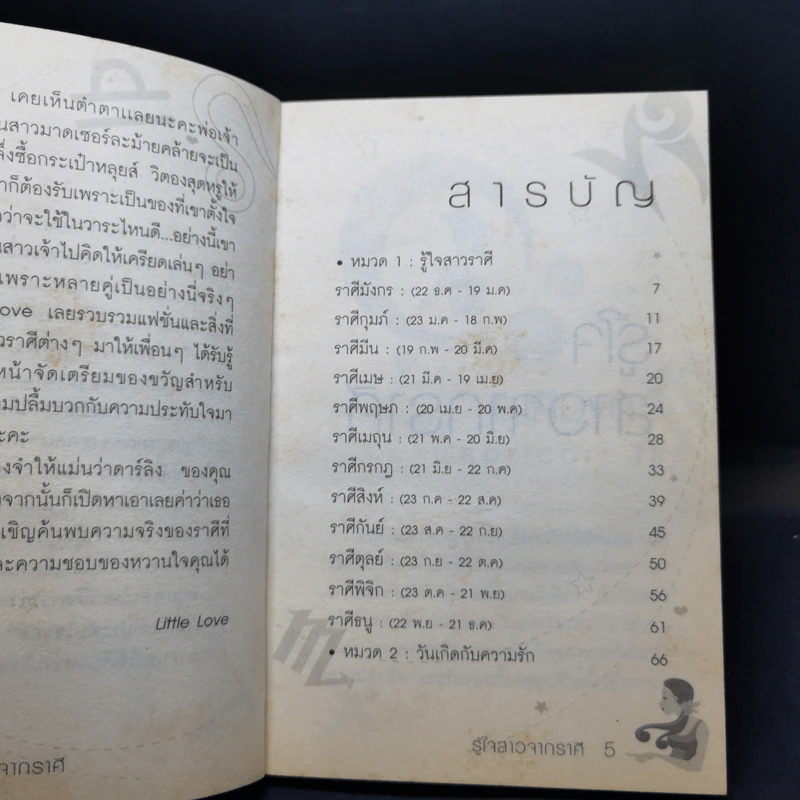 เคยเห็นตำตาแลยนะคะพ่อเจ้า
นสาวมาดเซอร์ละม้ายคล้ายจะเป็น
ซื้อกระเป๋าหลุยส์ วิตองสุดหรูให้
าก็ต้องรับเพราะเป็นของที่เขาตั้งใจ
ว่าจะใช้ในวาระไหนดี...อย่างนี้เขา
นสาวเจ้าไปคิดให้เครียดเล่นๆ อย่า
เพราะหลายคู่เป็นอย่างนี้จริงๆ
ove เลยรวบรวมแฟชั่นและสิ่งที่
วราศีต่างๆ มาให้เพื่อนๆ ได้รับรู้
หน้าจัดเตรียมของขวัญสำหรับ
มปลื้มบวกกับความประทับใจมา
ะคะ
งจำให้แม่นว่าดาร์ลิง ของคุณ
จากนั้นก็เปิดหาเอาเลยค่าว่าเธอ
เชิญค้นพบความจริงของราศีที่
ละความชอบของหวานใจคุณได้
Little Love
จากราศี
สารบัญ
• หมวด 1 : รู้ใจสาวราศี
ราศีมังกร : (22 ธ.ค - 19 ม.ค) 7
ราศีกุมภ์ : (23 ม.ค - 18 ก.พ) 11
ราศีมีน : (19 ก.พ - 20 มี.ค) 17
ราศีเมษ : (21 มี.ค - 19 เม.ย) 20
ราศีพฤษภ : (20 เม.ย - 20 พ.ค) 24
ราศีเมถุน : (21 พ.ค - 20 มิ.ย) 28
ราศีกรกฎ : (21 มิ.ย - 22 ก.ค) 33
ราศีสิงห์ : (23 ก.ค - 22 ส.ค) 39
ราศีกันย์ : (23 ส.ค - 22 ก.ย) 45
ราศีตุลย์ : (23 ก.ย - 22 ต.ค) 50
ราศีพิจิก : (23 ต.ค - 21 พ.ย) 56
ราศีธนู : (22 พ.ย - 21 ธ.ค) 61
• หมวด 2 : วันเกิดกับความรัก 66
รู้ใจสาวจากราศี 5